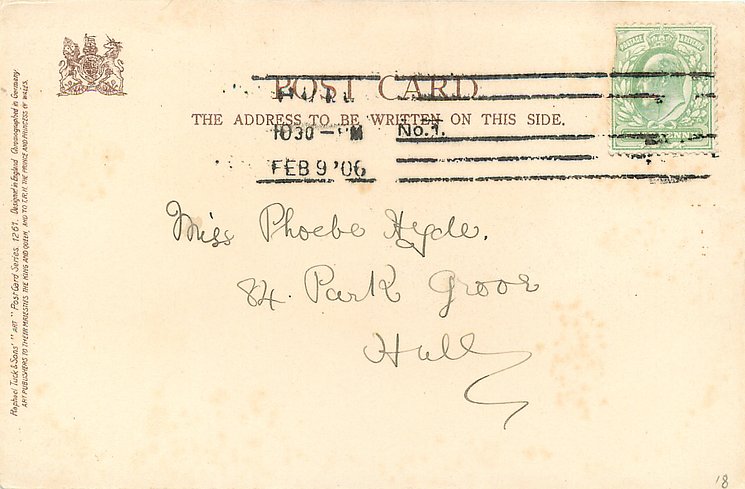 POST CARD
THE ADDRESS TO BE WRITTEN ON THIS SIDE.
HULL
10 30 - PM
No. 1.
FEB 9 '06
POSTAGE REVENUE
Miss Phoebe Hyde.
84. Park Grove
Hull
Raphael Tuck & Sons' "ART" Post Card Series 1261. Designed in England Chromographed in Germany
ART PUBLISHERS TO THEIR MAJESTIES THE KING AND QUEEN, AND TO T.R.H. THE PRINCE AND PRINCESS OF WALES.
18